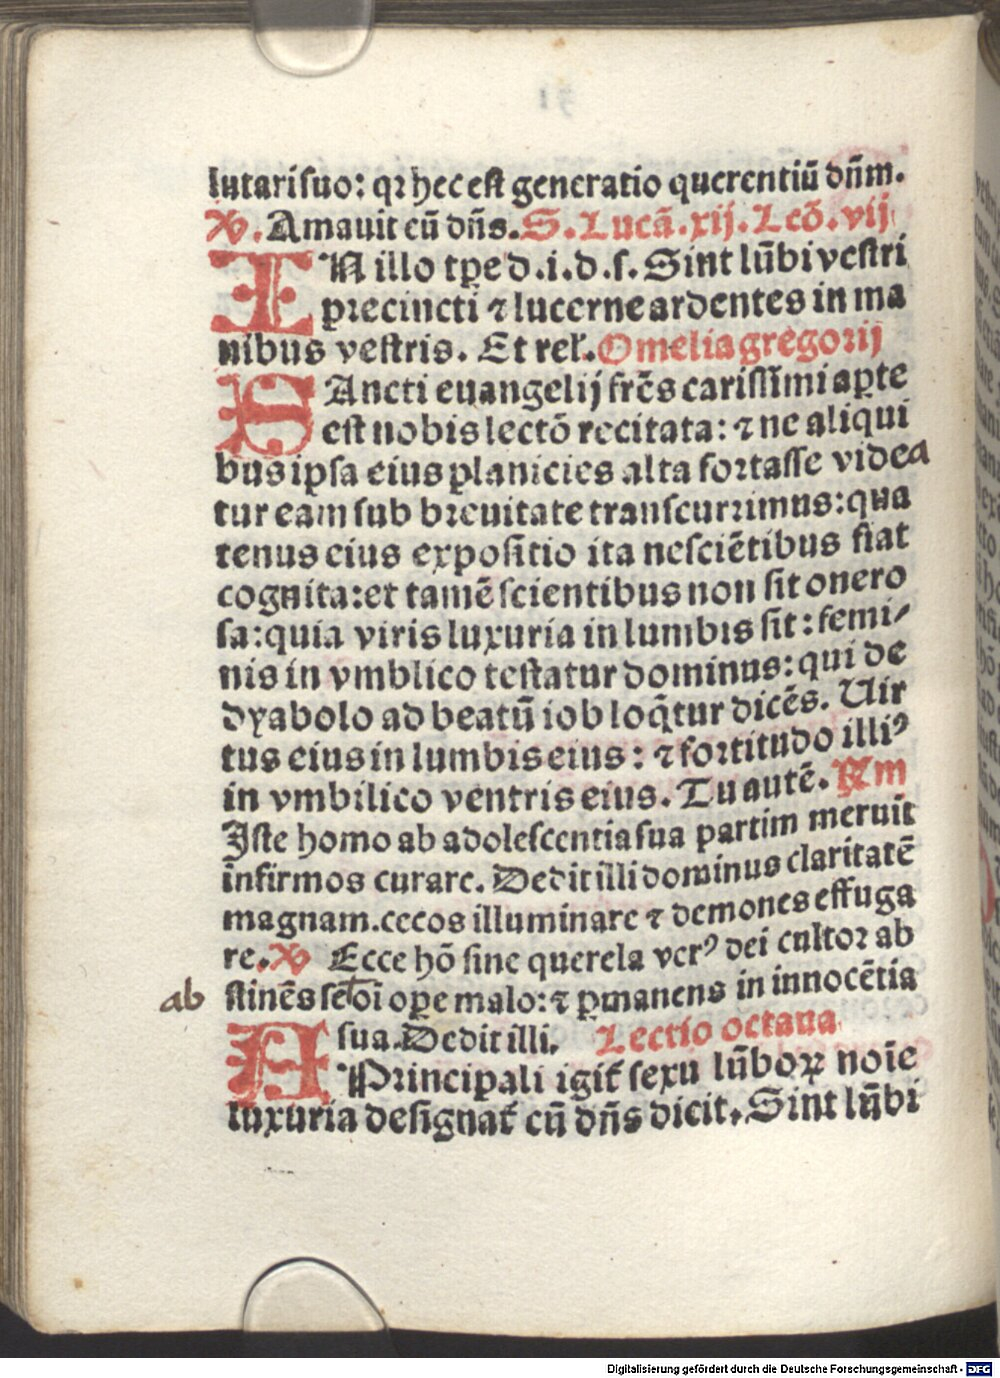 lutari suo: qꝛ hec est generatio querentiū dn̄m.
℣. Amauit eū dn̄s. S. Lucā. xij. Lcō. vij
IN illo tꝑe d.i.d.s. Sint lūbi vestri
precincti ⁊ lucerne ardentes in ma
nibus vestris. Et rel'. Omelia gregorij
SAncti euangelij fr̄es carissimi aꝑte
est nobis lectō recitata: ⁊ ne aliqui
bus ipsa eius planicies alta fortasse videa
tur eam sub breuitate transcurrimus: qua
tenus eius expositio ita nesciētibus fiat
cognita: et tamē scientibus non sit onero
sa: quia viris luxuria in lumbis sit: femi-
nis in vmblico testatur dominus: qui de
dyabolo ad beatū iob loq̄tur dicēs. Uir
tus eius in lumbis eius: ⁊ fortitudo illiꝰ
in vmbilico ventris eius. Tu autē. ℞m
Iste homo ab adolescentia sua partim meruit
infirmos curare. Dedit illi dominus claritatē
magnam. cecos illuminare ⁊ demones effuga
re. ℣ Ecce hō sine querela verꝰ dei cultor ab
ab stinēs se oī oꝑe malo: ⁊ ꝑmanens in innocētia
sua. Dedit illi. Lectio octaua
A Principali igit̄ sexu lūboꝝ noīe
luxuria designat̄ cū dn̄s dicit. Sint lūbi
Digitalisierung gefördert durch die Deutsche Forschungsgemeinschaft - DFG